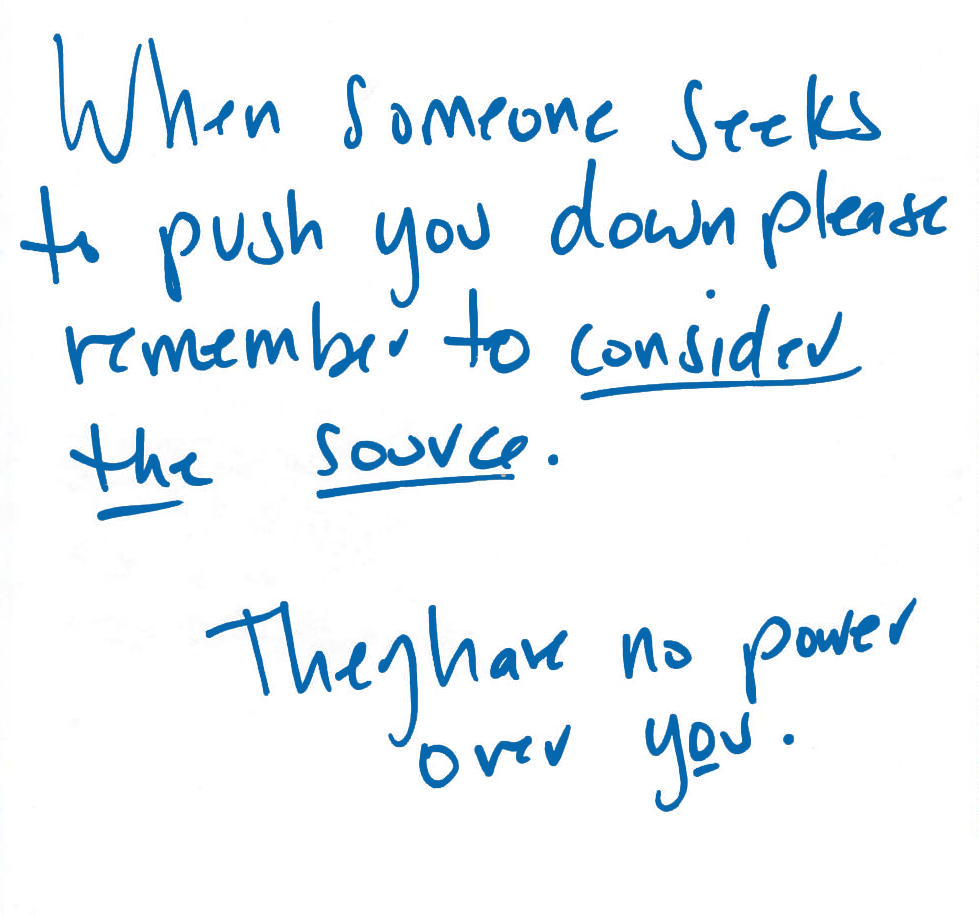 When someone seeks
to push you down please
remember to consider
the source.
They have no power
over you.